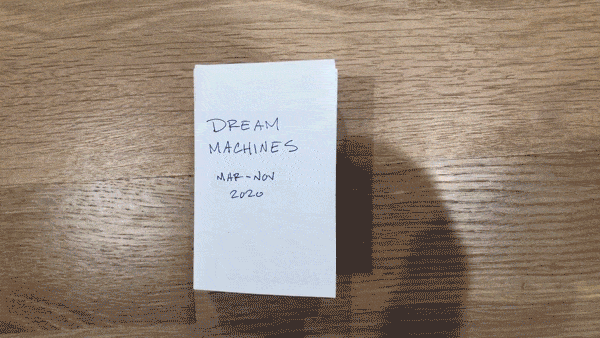 DREAM
MACHINES
MAR-NOV
2020